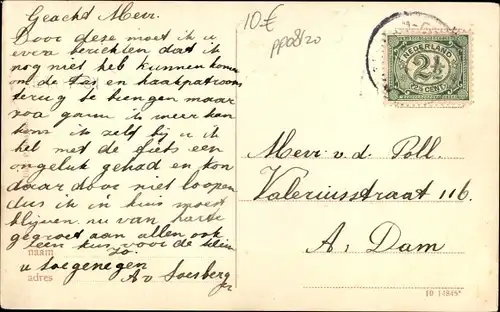 Geacht Mevr.
Door deze moet ik u
even berichten dat ik
nog niet heb kunnen komen
om de tas en haakpatroon
terug te brengen maar
nu kan
kom ik zelf bij u ik
heb met de fiets een
ongeluk gehad en kon
daar door niet loopen
dus ik in huis moest
blijven nu van harte
gegroet aan allen ook
een kus voor de kleine
naam
Jo.
u toegenegen
adres
A v Soesbergen
10 €
NEDERLAND
2½
(2½ CENT)
Mevr v. d. Poll.
Valeriusstraat 116.
A, Dam